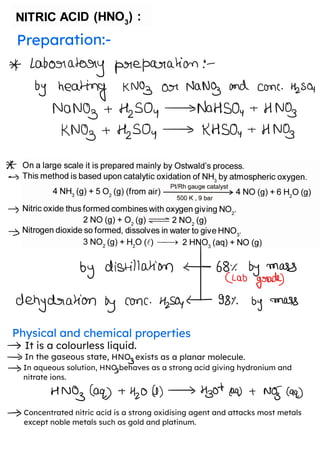 NITRIC ACID (HNO₃) :
Preparation:-
* Laboratory preparation :-
by heating KNO₃ or NaNO₃ and conc. H₂SO₄
NaNO₃ + H₂SO₄ → NaHSO₄ + HNO₃
KNO₃ + H₂SO₄ → KHSO₄ + HNO₃
* On a large scale it is prepared mainly by Ostwald's process.
→ This method is based upon catalytic oxidation of NH₃ by atmospheric oxygen.
4 NH₃ (g) + 5 O₂ (g) (from air) Pt/Rh gauge catalyst → 500 K , 9 bar 4 NO (g) + 6 H₂O (g)
→ Nitric oxide thus formed combines with oxygen giving NO₂.
2 NO (g) + O₂ (g) ⇌ 2 NO₂ (g)
→ Nitrogen dioxide so formed, dissolves in water to give HNO₃.
3 NO₂ (g) + H₂O (ℓ) → 2 HNO₃ (aq) + NO (g)
by distillation ← 68% by mass
(Lab grade)
dehydration by conc. H₂SO₄ ← 98% by mass
Physical and chemical properties
→ It is a colourless liquid.
→ In the gaseous state, HNO₃ exists as a planar molecule.
→ In aqueous solution, HNO₃ behaves as a strong acid giving hydronium and
nitrate ions.
HNO₃ (aq) + H₂O (l) → H₃O⁺ (aq) + NO₃⁻ (aq)
→ Concentrated nitric acid is a strong oxidising agent and attacks most metals
except noble metals such as gold and platinum.